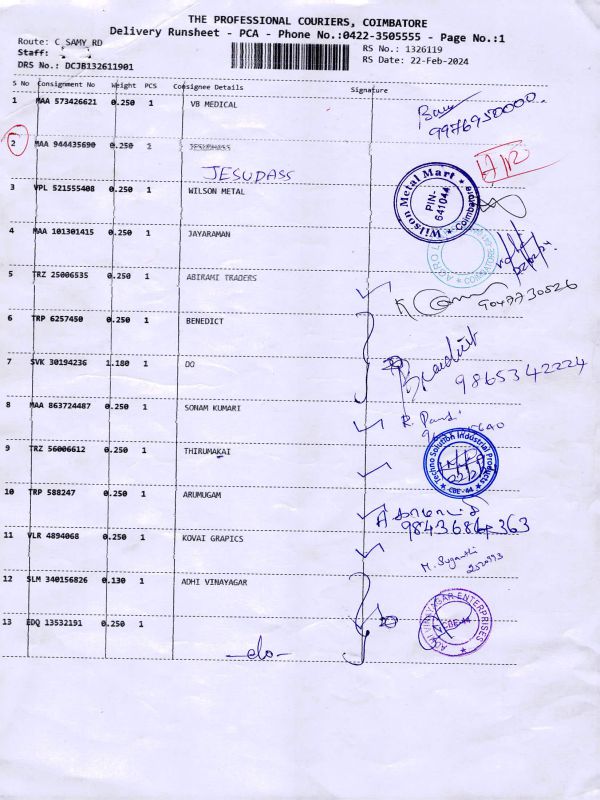 THE PROFESSIONAL COURIERS, COIMBATORE
Delivery Runsheet - PCA - Phone No.:0422-3505555 - Page No.:1
Route: C SAMY RD
RS No.: 1326119
Staff:
RS Date: 22-Feb-2024
DRS No.: DCJB132611901
S No Consignment No Weight PCS Consignee Details Signature
1 MAA 573426621 0.250 1 VB MEDICAL
9976950000
2 MAA 944435690 0.250 2 JESUDHASS
JESUDASS
3 VPL 521555408 0.250 1 WILSON METAL
Wilson Metal Mart ★ Coimbatore ★
PIN-
641044
4 MAA 101301415 0.250 1 JAYARAMAN
COIMBATORE
5 TRZ 25006535 0.250 1 ABIRAMI TRADERS
9047730526
6 TRP 6257450 0.250 1 BENEDICT
Benedict
7 SVK 30194236 1.180 1 DO
9865342224
8 MAA 863724487 0.250 1 SONAM KUMARI
R. Pandi
9 TRZ 56006612 0.250 1 THIRUMAKAI
Techno Solution Industrial Products
★ CBE-44 ★
10 TRP 588247 0.250 1 ARUMUGAM
11 VLR 4894068 0.250 1 KOVAI GRAPICS
M. Suganthi
12 SLM 340156826 0.130 1 ADHI VINAYAGAR
13 EDQ 13532191 0.250 1
ADHI VINAYAGAR ENTERPRISES ★
CBE-44
-do-